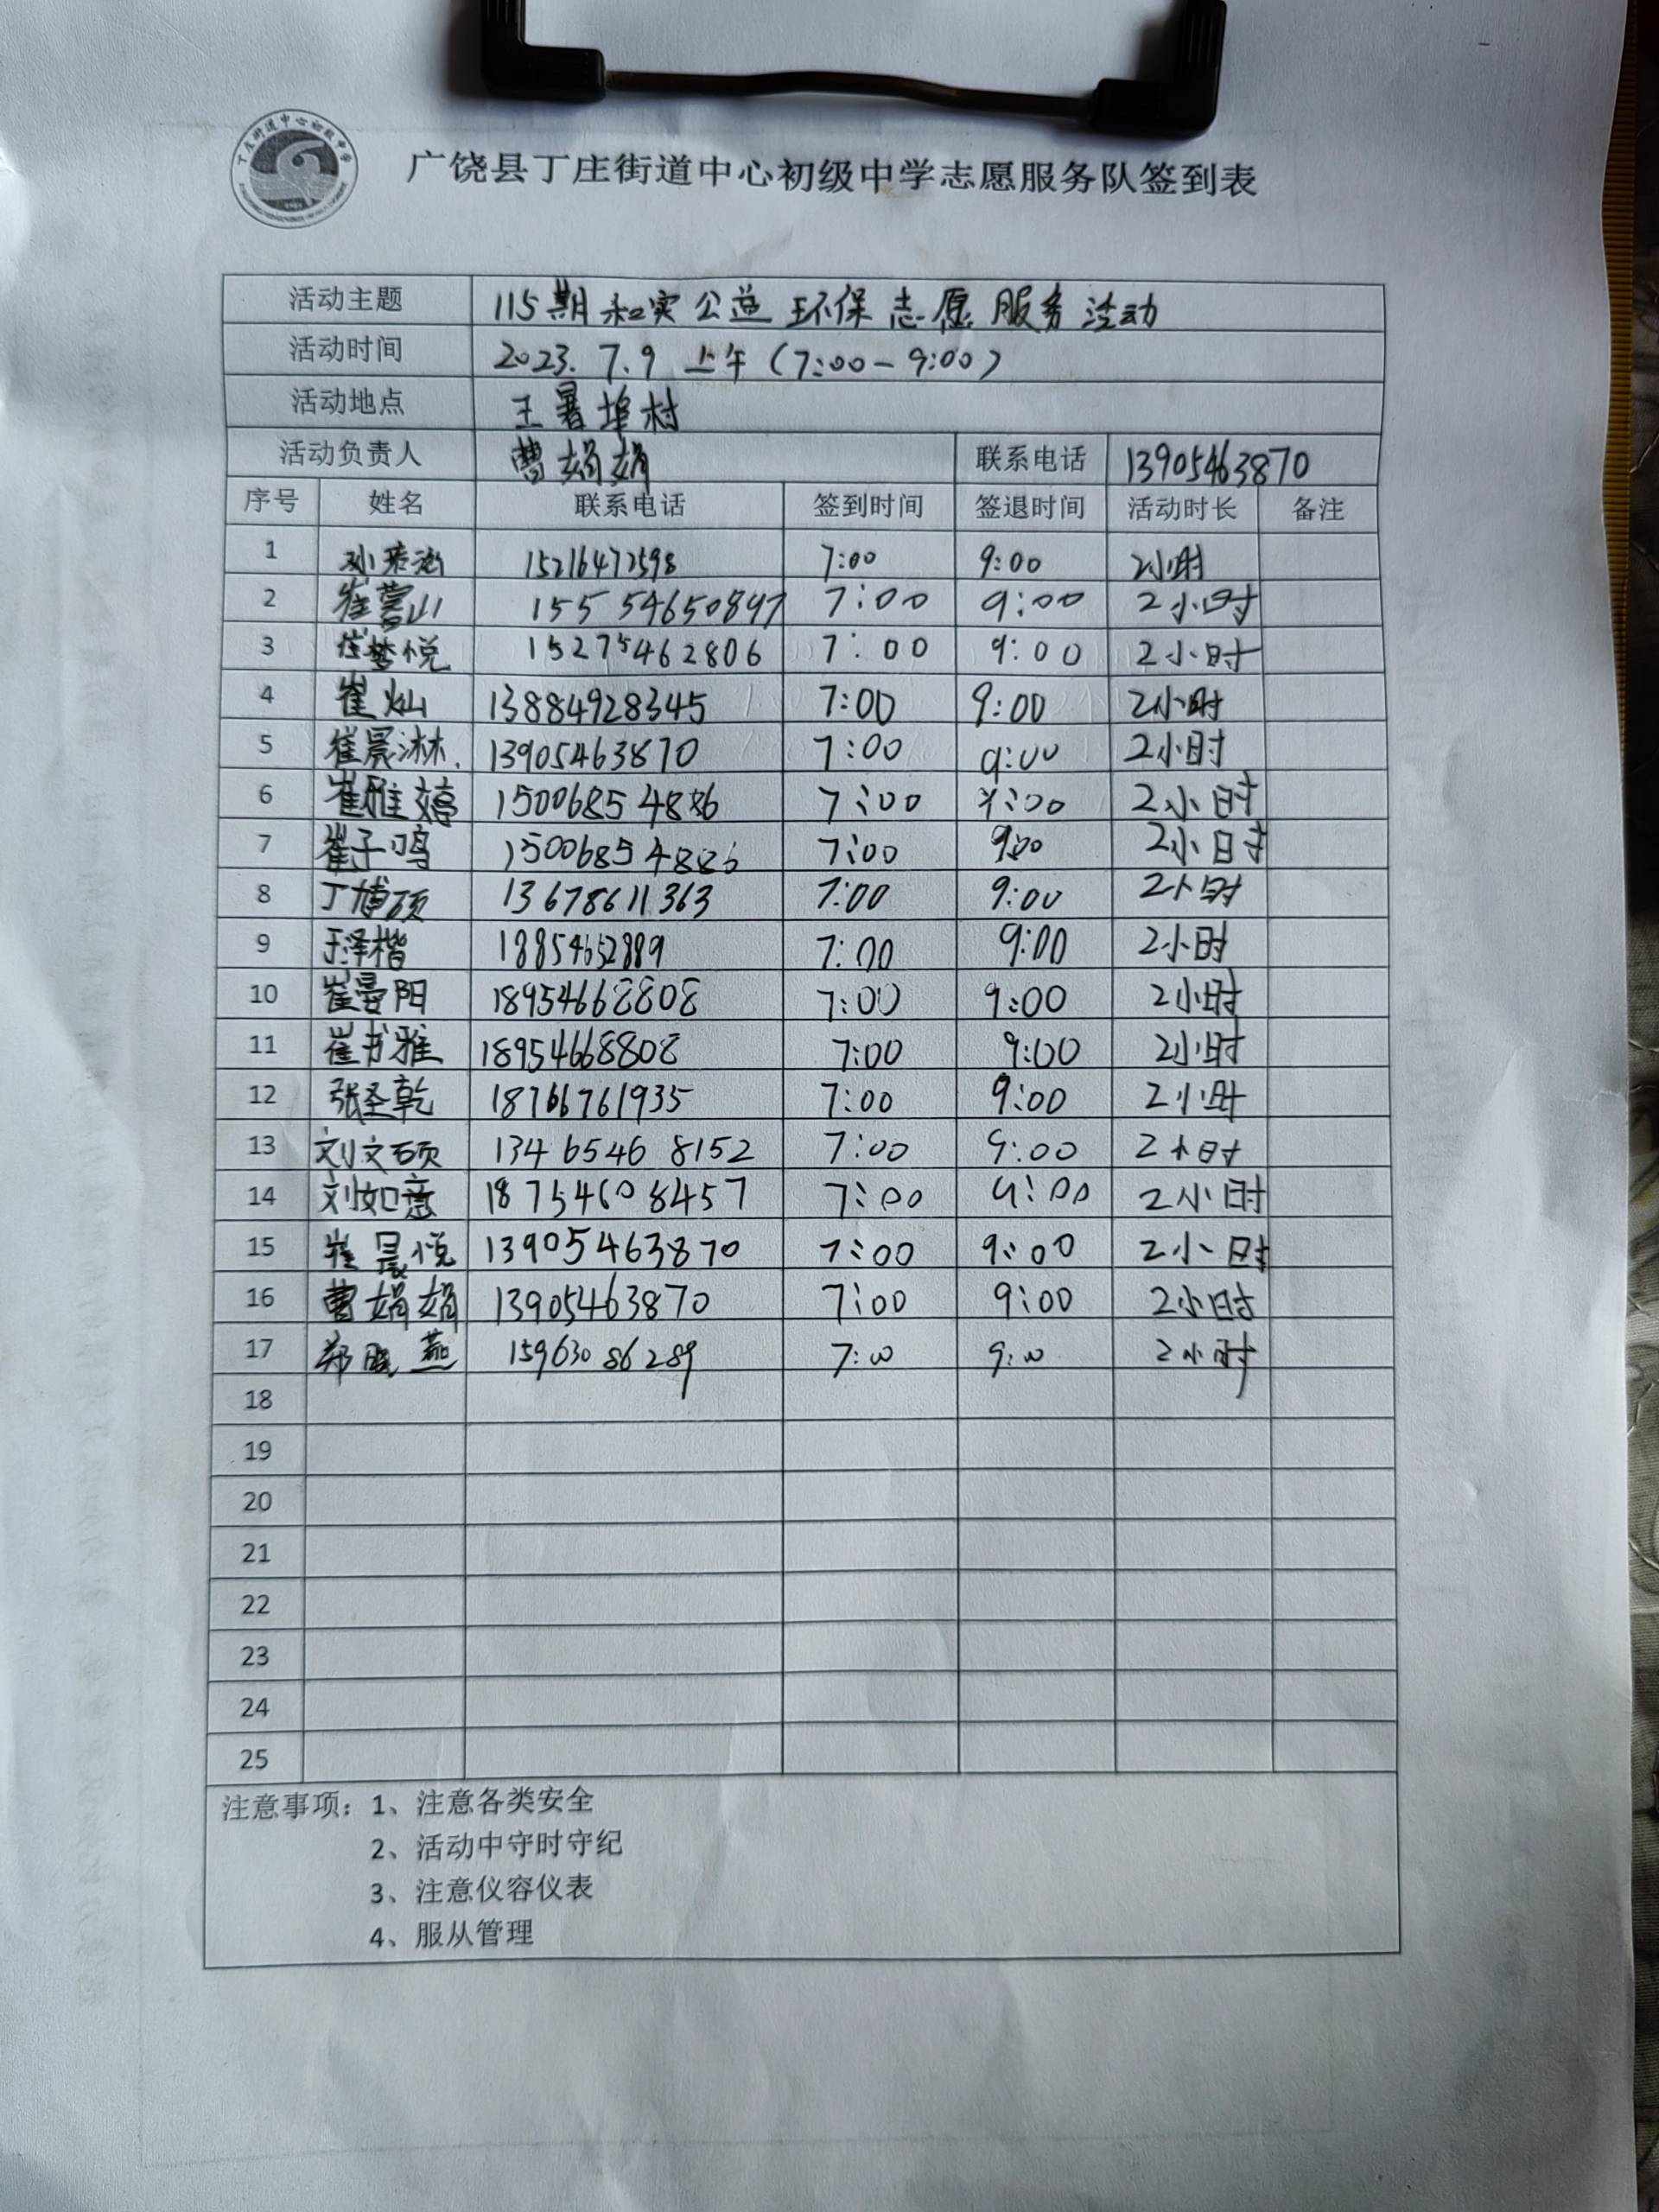 丁庄街道中心初级中学
广饶县丁庄街道中心初级中学志愿服务队签到表
活动主题 115期和实公益环保志愿服务活动
活动时间 2023.7.9 上午(7:00-9:00)
活动地点 王署埠村
活动负责人 曹娟娟 联系电话 13905463870
序号 姓名 联系电话 签到时间 签退时间 活动时长 备注
1 15216472598 7:00 9:00 2小时
2 15554650897 7:00 9:00 2小时
3 崔梦悦 15275462806 7:00 9:00 2小时
4 崔灿 13884928345 7:00 9:00 2小时
5 崔晨淋 13905463870 7:00 9:00 2小时
6 崔雅婷 15006854886 7:00 9:00 2小时
7 崔子鸣 15006854886 7:00 9:00 2小时
8 丁博硕 13678611363 7:00 9:00 2小时
9 于泽楷 18854652889 7:00 9:00 2小时
10 崔曼阳 18954668808 7:00 9:00 2小时
11 崔书雅 18954668808 7:00 9:00 2小时
12 张圣乾 18766761935 7:00 9:00 2小时
13 刘文硕 13465468152 7:00 9:00 2小时
14 刘如意 18754608457 7:00 9:00 2小时
15 崔晨悦 13905463870 7:00 9:00 2小时
16 曹娟娟 13905463870 7:00 9:00 2小时
17 郑晓燕 15963086289 7:00 9:00 2小时
18
19
20
21
22
23
24
25
注意事项：1、注意各类安全
2、活动中守时守纪
3、注意仪容仪表
4、服从管理